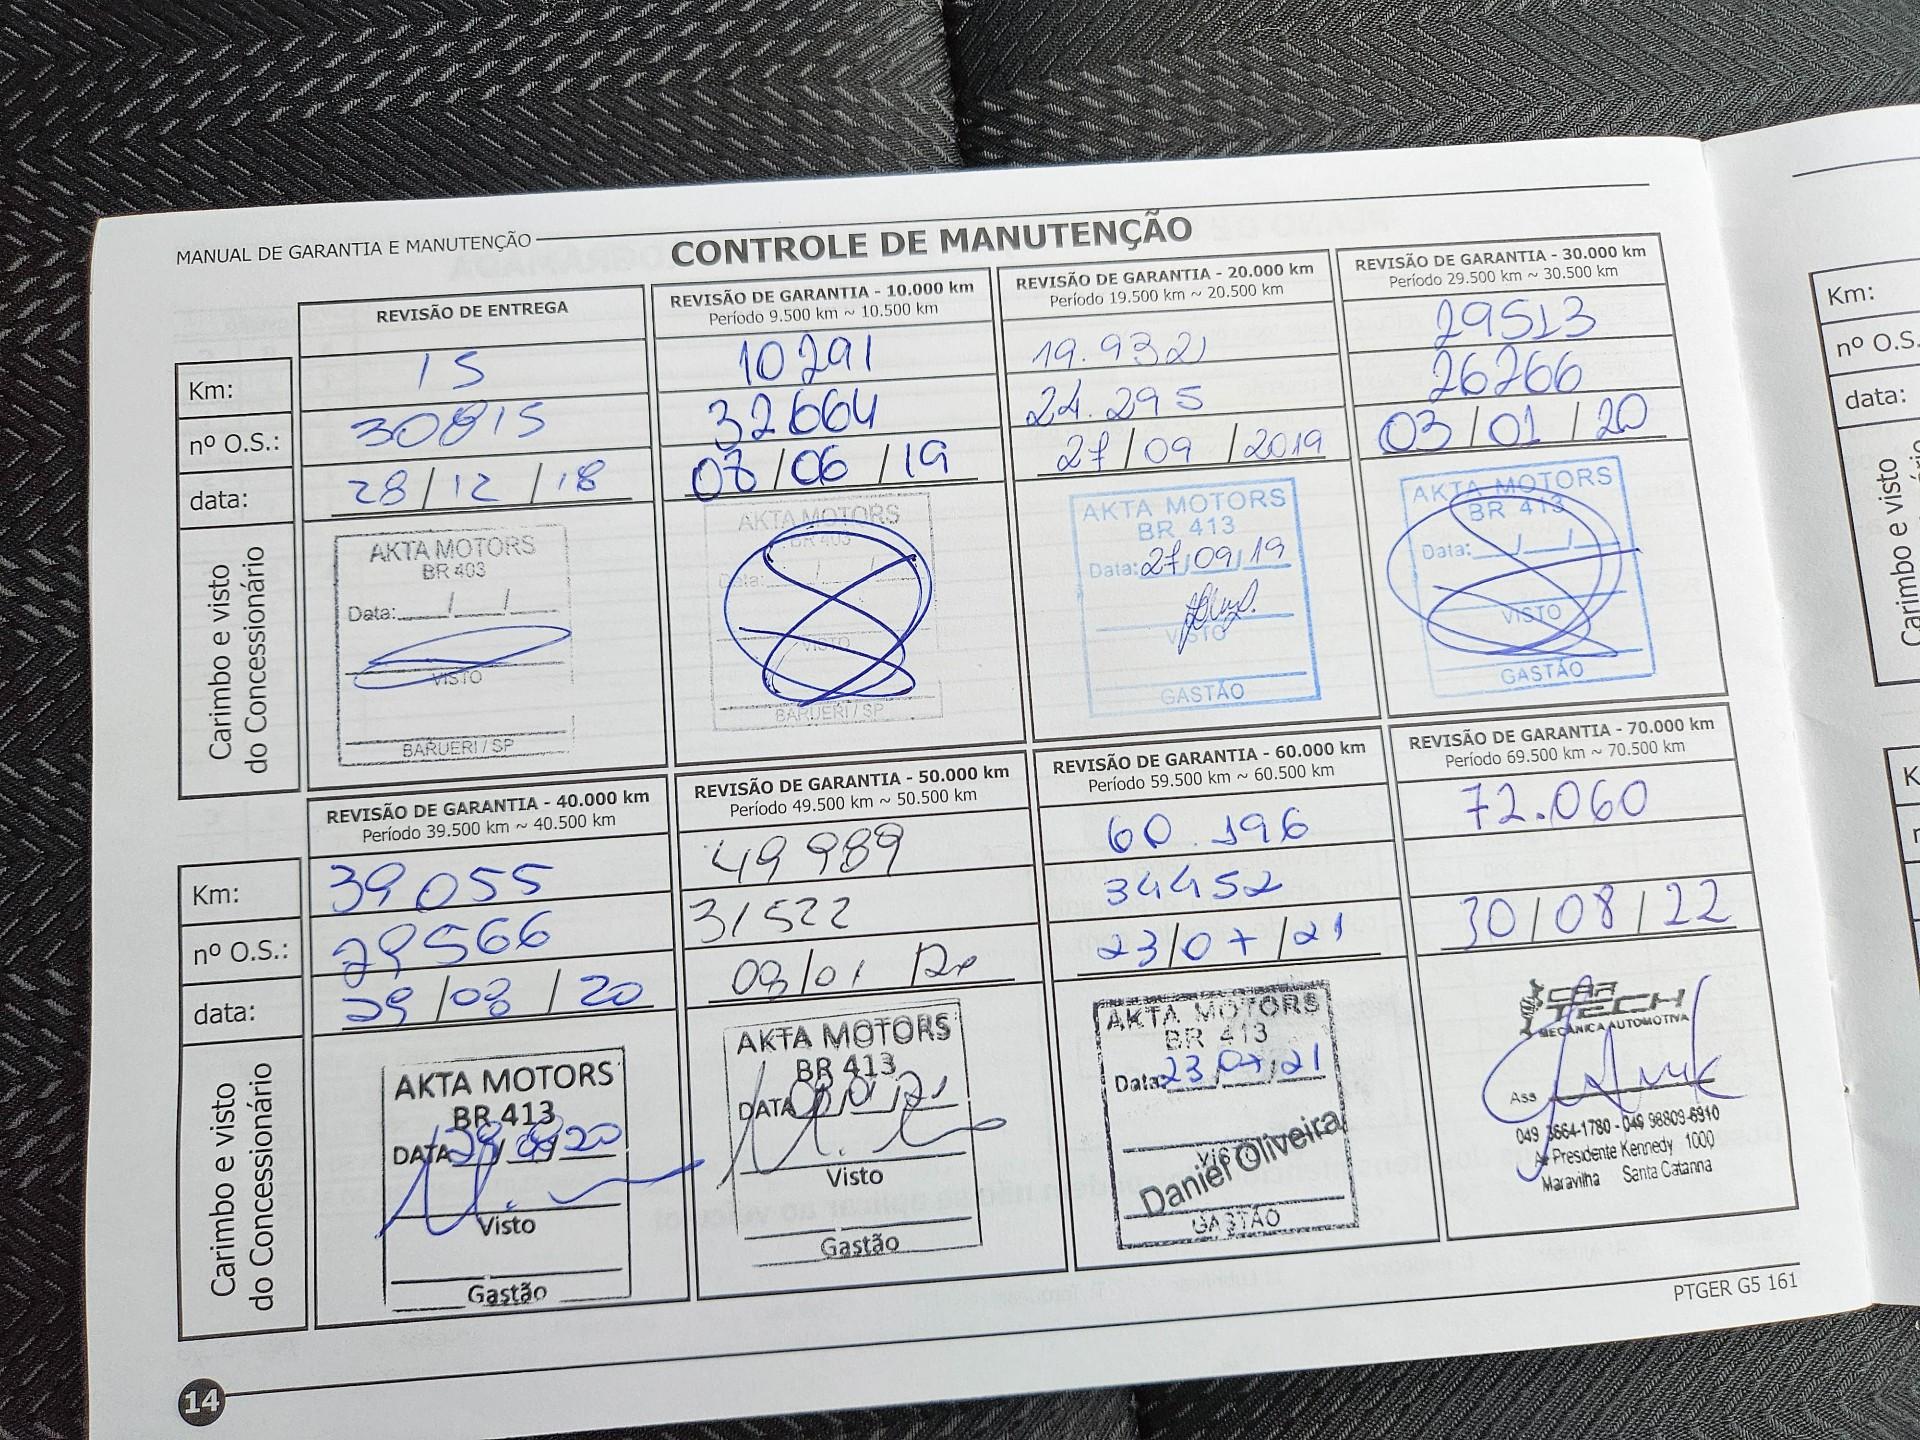 MANUAL DE GARANTIA E MANUTENÇÃO
CONTROLE DE MANUTENÇÃO
REVISÃO DE ENTREGA
Km: 15
nº O.S.: 30815
data: 28/12/18
Carimbo e visto
do Concessionário
AKTA MOTORS
BR 403
Data: __/__/__
VISTO
BARUERI / SP
REVISÃO DE GARANTIA - 10.000 km
Período 9.500 km ~ 10.500 km
10291
32664
/06/19
AKTA MOTORS
BR 403
Data: __/__/__
VISTO
BARUERI / SP
REVISÃO DE GARANTIA - 20.000 km
Período 19.500 km ~ 20.500 km
19.932
24.295
27/09/2019
AKTA MOTORS
BR 413
Data: 27/09/19
VISTO
GASTÃO
REVISÃO DE GARANTIA - 30.000 km
Período 29.500 km ~ 30.500 km
29513
26266
03/01/20
AKTA MOTORS
BR 413
Data: __/__/__
VISTO
GASTÃO
REVISÃO DE GARANTIA - 40.000 km
Período 39.500 km ~ 40.500 km
Km: 39055
nº O.S.: 29566
data: 29/ /20
Carimbo e visto
do Concessionário
AKTA MOTORS
BR 413
DATA
Visto
Gastão
REVISÃO DE GARANTIA - 50.000 km
Período 49.500 km ~ 50.500 km
49989
31522
/01
AKTA MOTORS
BR 413
DATA
Visto
Gastão
REVISÃO DE GARANTIA - 60.000 km
Período 59.500 km ~ 60.500 km
60.196
34452
23/07/21
AKTA MOTORS
BR 413
Data: 23/07/21
VISTO
Daniel Oliveira
GASTÃO
REVISÃO DE GARANTIA - 70.000 km
Período 69.500 km ~ 70.500 km
72.060
30/08/22
CAR
TECH
MECÂNICA AUTOMOTIVA
Ass
049 3664-1780 - 049 98809-6910
Av Presidente Kennedy 1000
Maravilha Santa Catarina
PTGER G5 161
14
Km:
nº O.S.
data:
Carimbo e visto